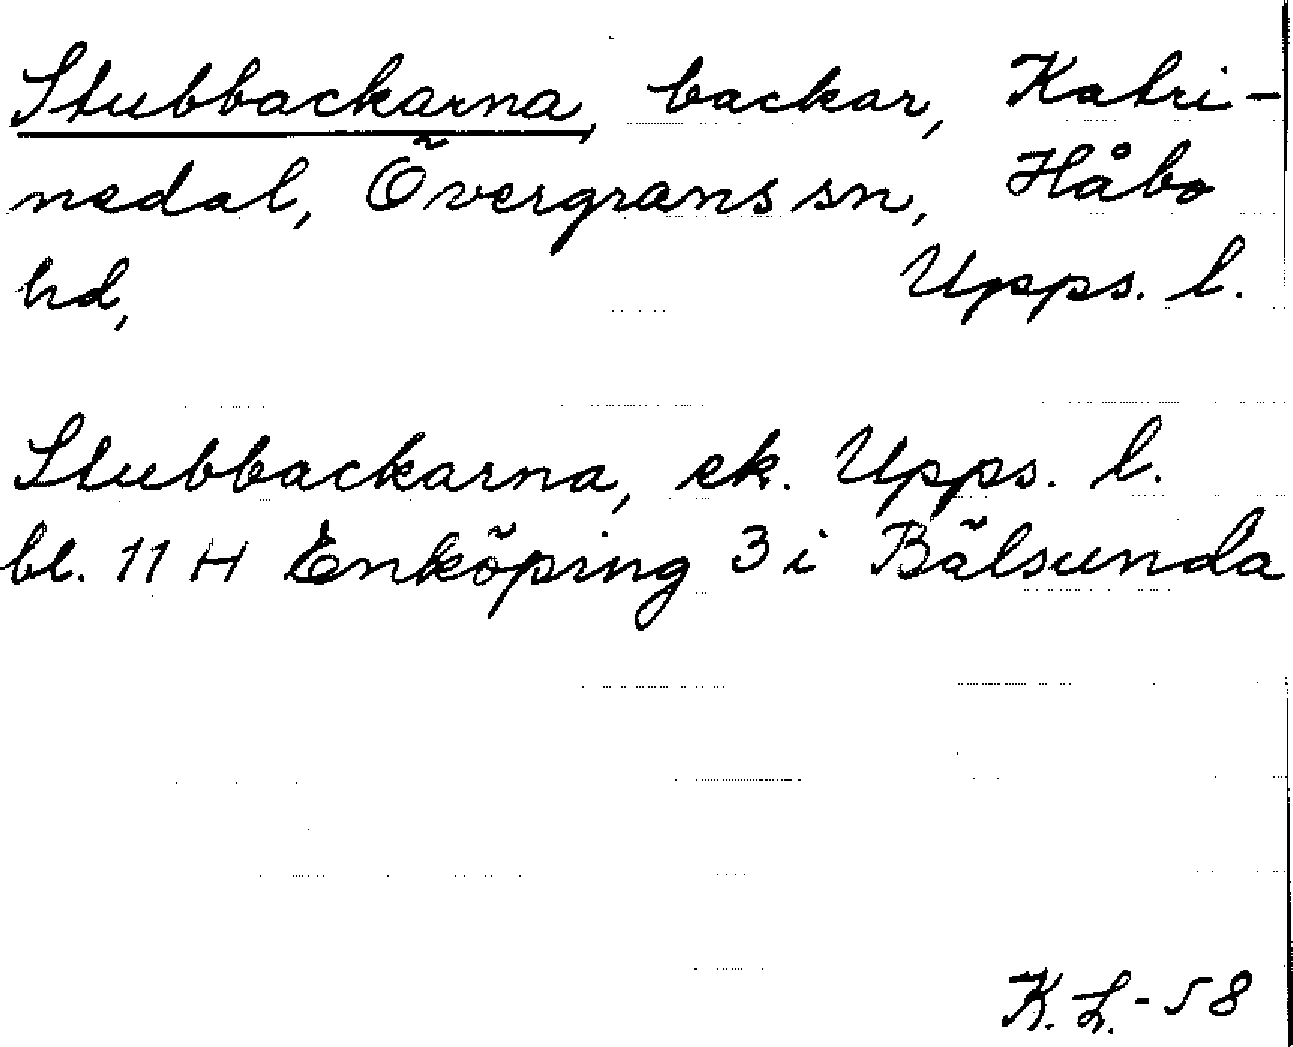 Stubbackarna, backar, Katri-
nedal, Övergrans sn, Håbo
hd, Upps. l.
Stubbackarna, ek. Upps. l.
bl. 11 H Enköping 3 i Bälsunda
K. L. - 58